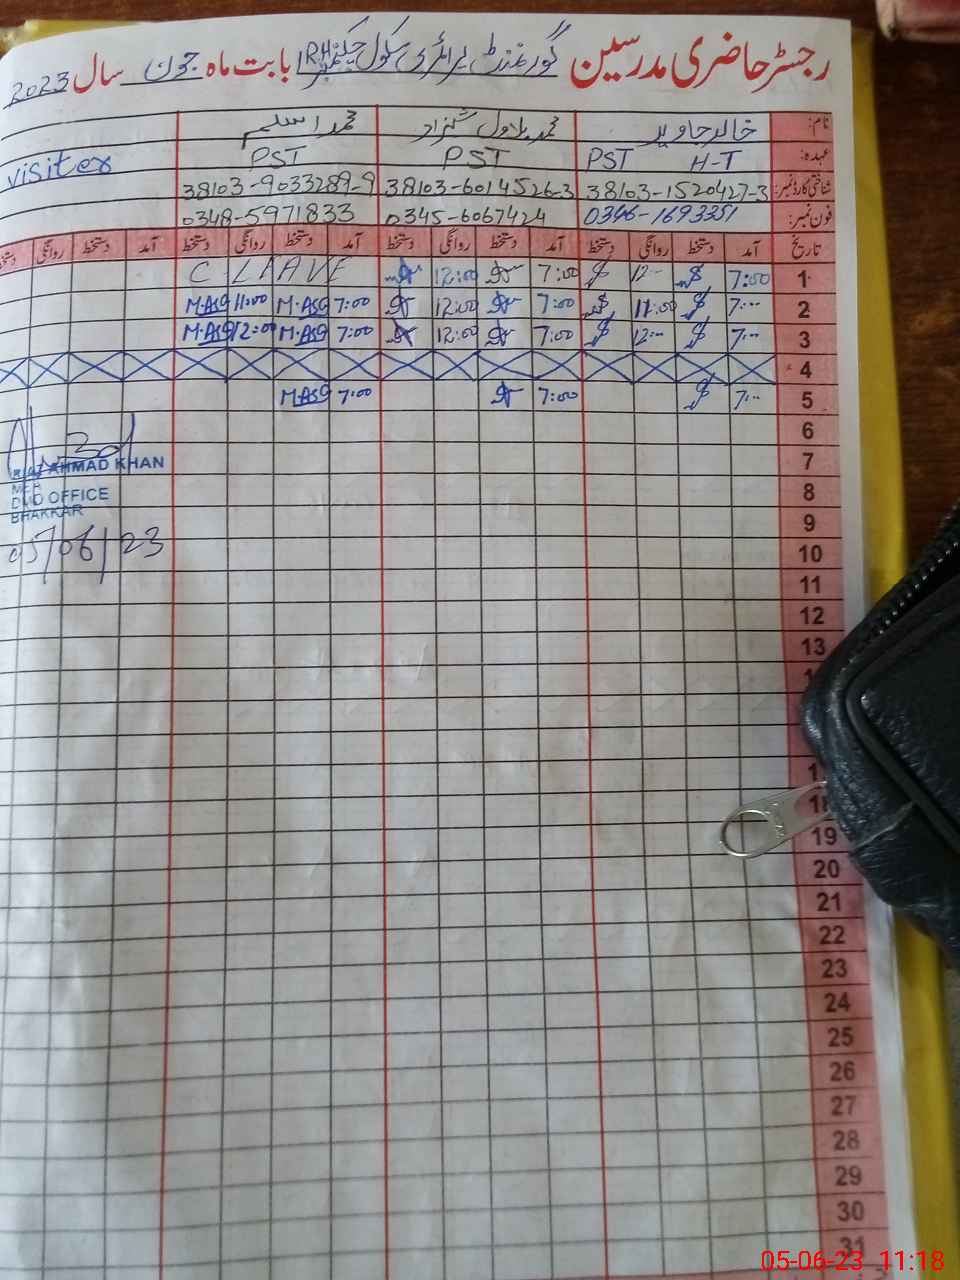 رجسٹر حاضری مدرسین گورنمنٹ پرائمری سکول چک نمبر 1RH بابت ماہ جون سال 2023
نام: خالد جاوید محمد بلاول شہزاد محمد اسلم
عہدہ: PST H-T PST PST visiter
شناختی کارڈ نمبر: 38103-1520427-3 38103-6014526-3 38103-9033289-9
فون نمبر: 0346-1693351 0345-6067424 0348-5971833
تاریخ آمد دستخط روانگی دستخط آمد دستخط روانگی دستخط آمد دستخط روانگی دستخط آمد دستخط روانگی دستخط
1 7:00 12:00 7:00 12:00 C LEAVE
2 7:00 11:00 7:00 12:00 7:00 M.ASG 11:00 M.ASG
3 7:00 12:00 7:00 12:00 7:00 M.ASG 12:00 M.ASG
4
5 7:00 7:00 7:00 M.ASG
6
7
RIAZ AHMAD KHAN
MEA
8
DMO OFFICE
BHAKKAR
9
05/06/23
10
11
12
13
19
20
21
22
23
24
25
26
27
28
29
30
31
05-06-23 11:18